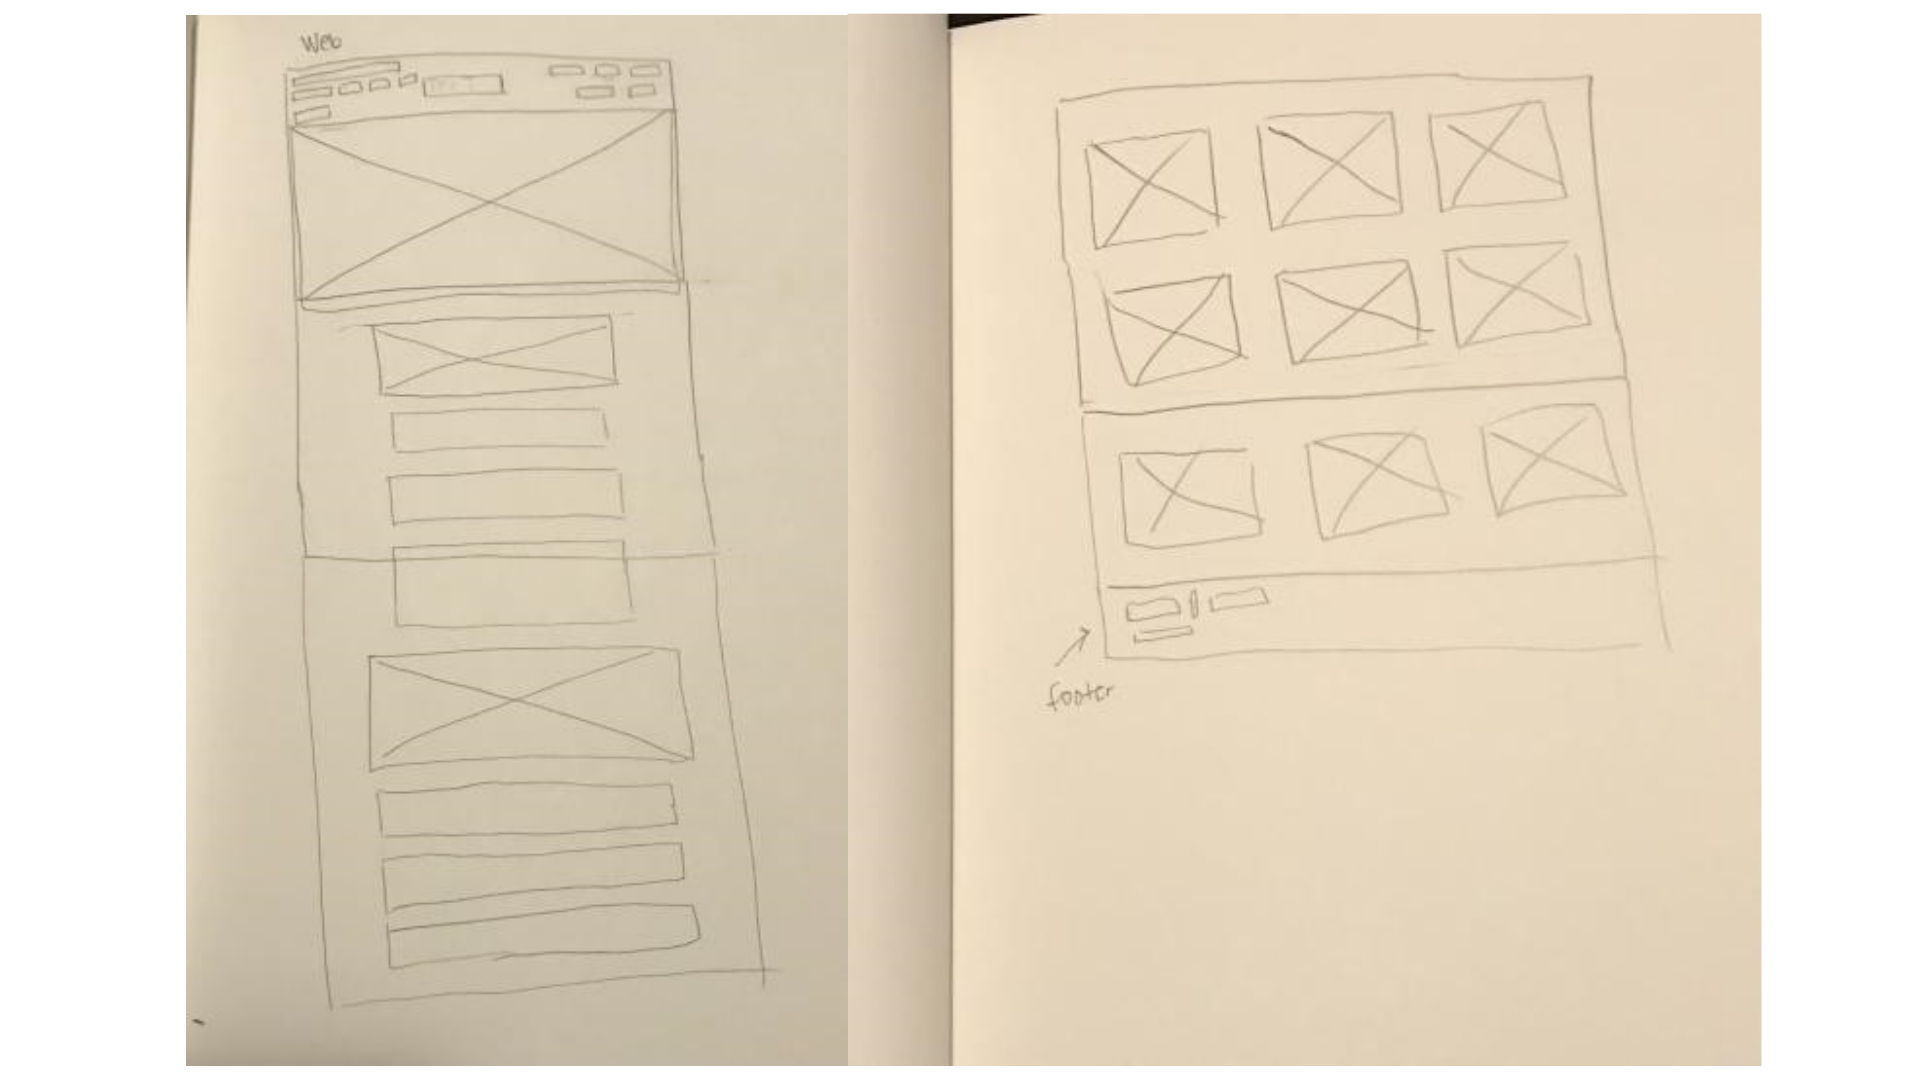 Web
footer